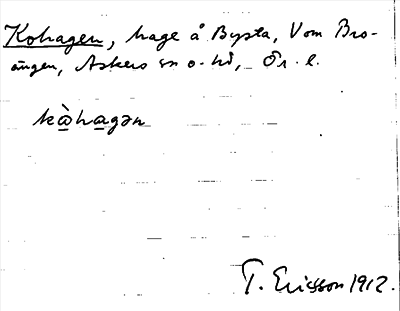 Kohagen, hage å Bysta, V om Bro-
ängen, Askers sn o. hd, Ör. l.
kàhagən
T. Ericsson 1912.